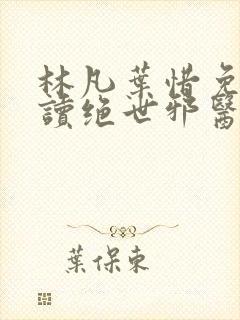 林凡葉惜免
讀绝世邪醫
葉保東